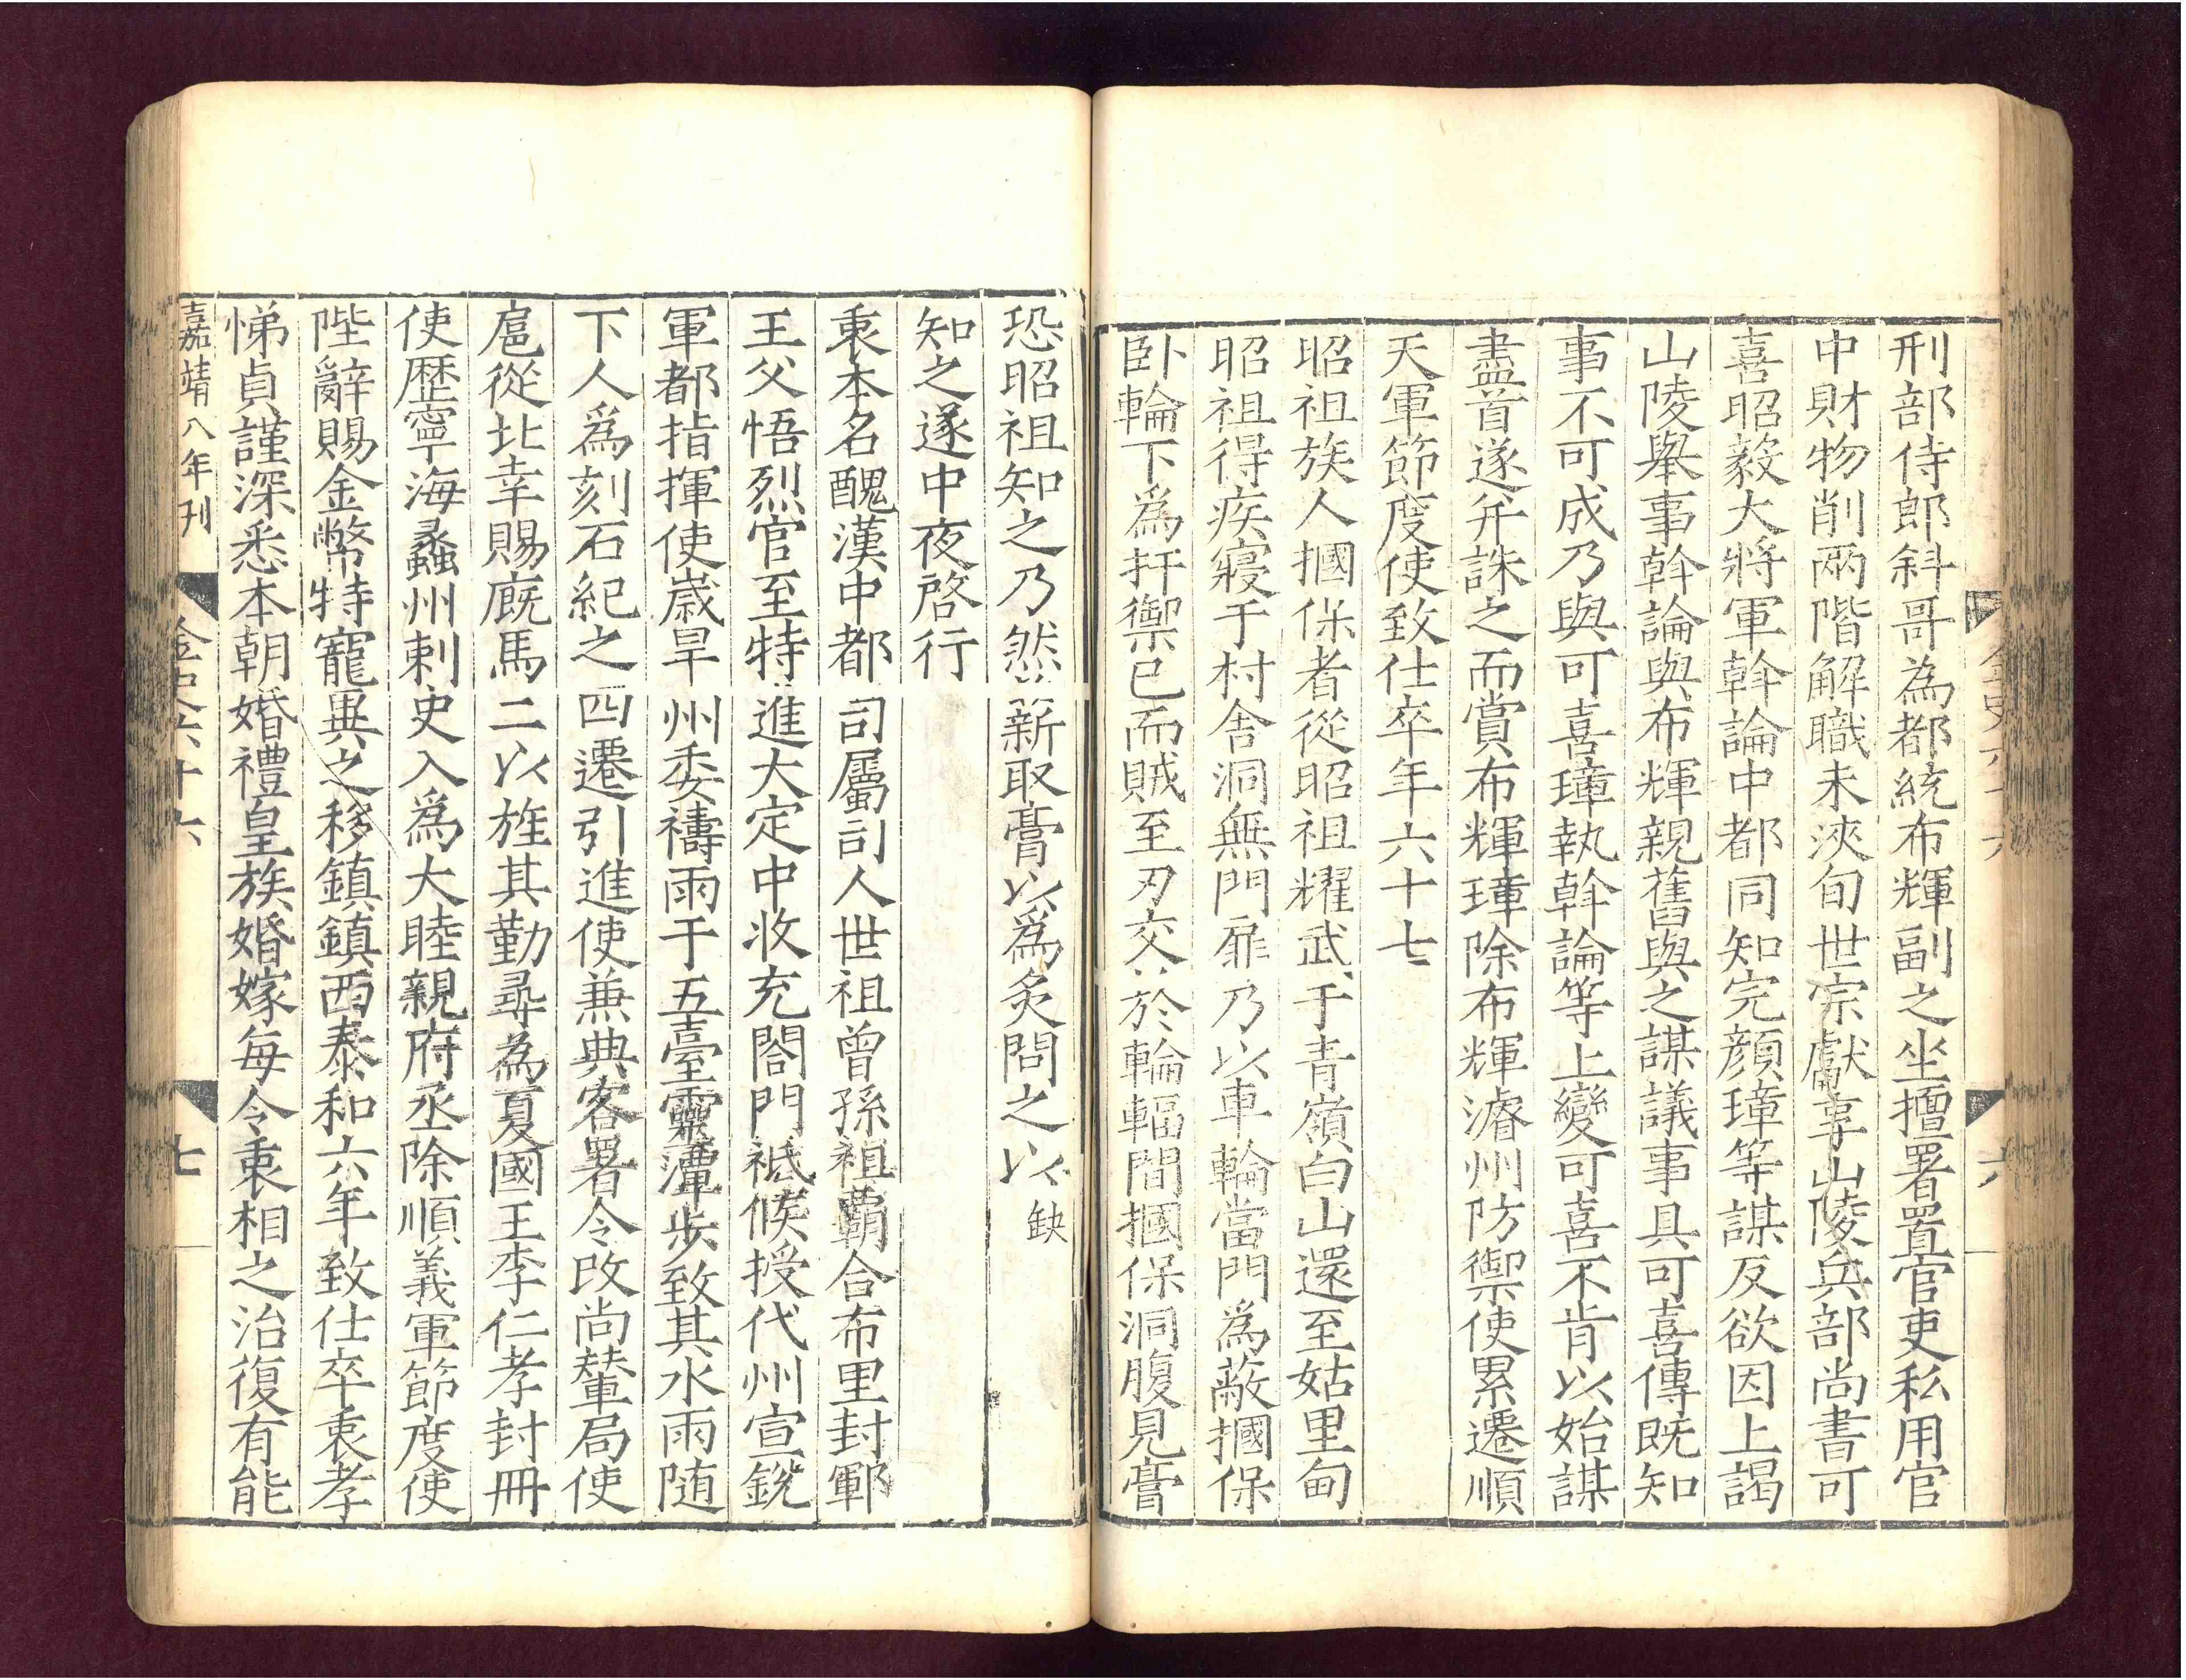 刑部侍郎斜哥為都統布輝副之坐擅署置官吏私用官
中財物削兩階解職未浹旬世宗獻享山陵兵部尚書可
喜昭毅大將軍斡論中都同知完顔璋等謀反欲因上謁
山陵舉事斡論與布輝親舊與之謀議事具可喜傳既知
事不可成乃與可喜璋執斡論等上變可喜不肯以始謀
盡首遂并誅之而賞布輝璋除布輝濬州防禦使累遷順
天軍節度使致仕卒年六十七
昭祖族人摑保者從昭祖耀武于青嶺白山還至姑里甸
昭祖得疾寢于村舍洞無門扉乃以車輪當門為蔽摑保
卧輪下爲扞禦已而賊至刃交於輪輻間摑保洞腹見膏
恐昭祖知之乃然薪取膏以爲炙問之以缺
知之遂中夜啓行
衷本名醜漢中都司屬司人世祖曾孫祖霸合布里封鄆
王父悟烈官至特進大定中收充閤門祗候授代州宣銳
軍都指揮使嵗旱州委禱雨于五臺靈潭步致其水雨随
下人爲刻石紀之四遷引進使兼典客署令改尚輦局使
扈從北幸賜廐馬二以旌其勤尋為夏國王李仁孝封冊
使歷寧海蠡州刺史入爲大睦親府丞除順義軍節度使
陛辭賜金幣特寵異之移鎮鎮西泰和六年致仕卒衷孝
悌貞謹深悉本朝婚禮皇族婚嫁每令衷相之治復有能
嘉靖八年刊
金史六十六
七